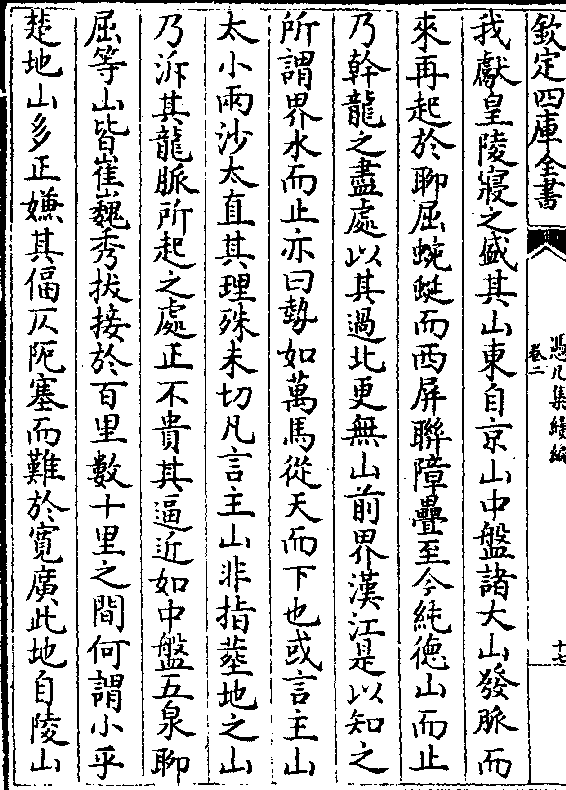 欽定四庫全書
憑几集續編
卷二
十七
我獻皇陵寢之盛其山東自京山中盤諸大山發脈而
來再起於聊屈蜿蜒而西屏聯障疊至今純徳山而止
乃幹龍之盡處以其過北更無山前界漢江是以知之
所謂界水而止亦曰勢如萬馬從天而下也或言主山
太小兩沙太直其理殊未切凡言主山非指塟地之山
乃泝其龍脈所起之處正不貴其逼近如中盤五泉聊
屈等山皆崔巍秀拔接於百里數十里之間何謂小乎
楚地山多正嫌其偪仄阨塞而難於寛廣此地自陵山